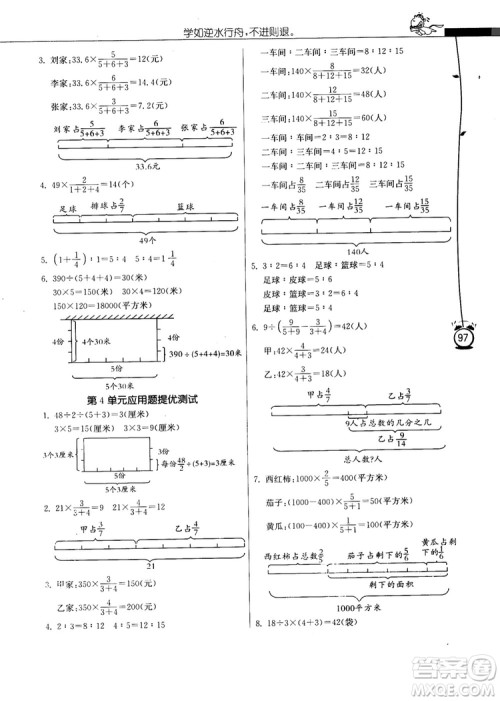 学如逆水行舟,不进则退。
3. 刘家:33.6×5/(5+6+3)=12(元)
李家:33.6×6/(5+6+3)=14.4(元)
张家:33.6×3/(5+6+3)=7.2(元)
刘家占5/(5+6+3) 李家占6/(5+6+3) 张家占3/(5+6+3)
33.6元
4. 49×2/(1+2+4)=14(个)
足球 排球占2/7 篮球
49个
5. (1+1/4):1/4=5:4 5:4=1 1/4
6. 390÷(5+4+4)=30(米)
30×5=150(米) 30×4=120(米)
150×120=18000(平方米)
4个30米 4份 4份
5份 390÷(5+4+4)=30米
5个30米
第 4 单元应用题提优测试
1. 48÷2÷(5+3)=3(厘米)
3×5=15(厘米) 3×3=9(厘米)
3个3厘米 3份
5份 每份48/2÷(5+3)=3厘米
5个3厘米
2. 21×3/(3+4)=9 21×4/(3+4)=12
甲占3/7 乙占4/7
21
3. 甲家:350×3/(3+4)=150(元)
乙家:350×4/(3+4)=200(元)
4. 2:3=8:12 4:5=12:15
一车间:二车间:三车间=8:12:15
一车间:140×8/(8+12+15)=32(人)
二车间:140×12/(8+12+15)=48(人)
三车间:140×15/(8+12+15)=60(人)
一车间:二车间:三车间=8:12:15
一车间占8/35 一车间占12/35 一车间占15/35
一车间占8/35 一车间占12/35 一车间占15/35
140人
5. 3:2=6:4 足球:篮球=5:4
足球:皮球=5:6
皮球:篮球=6:4
足球:皮球:篮球=5:6:4
6. 9÷(9/(5+9)-3/(3+4))=42(人)
甲:42×3/(4+3)=18(人)
乙:42×4/(4+3)=24(人)
甲占3/7 乙占4/7
9人占总数的几分之几
乙占9/14
总人数?人
7. 西红柿:1000×2/5=400(平方米)
茄子:(1000-400)×5/(5+4)
黄瓜:(1000-400)×4/(5+4)
西红柿占总数的2/5 茄子占剩下的5/9 黄瓜占剩下的4/9
剩下的面积
1000平方米
8. 18÷3×(4+3)=42(袋)
97
答案圈
MXQE.COM